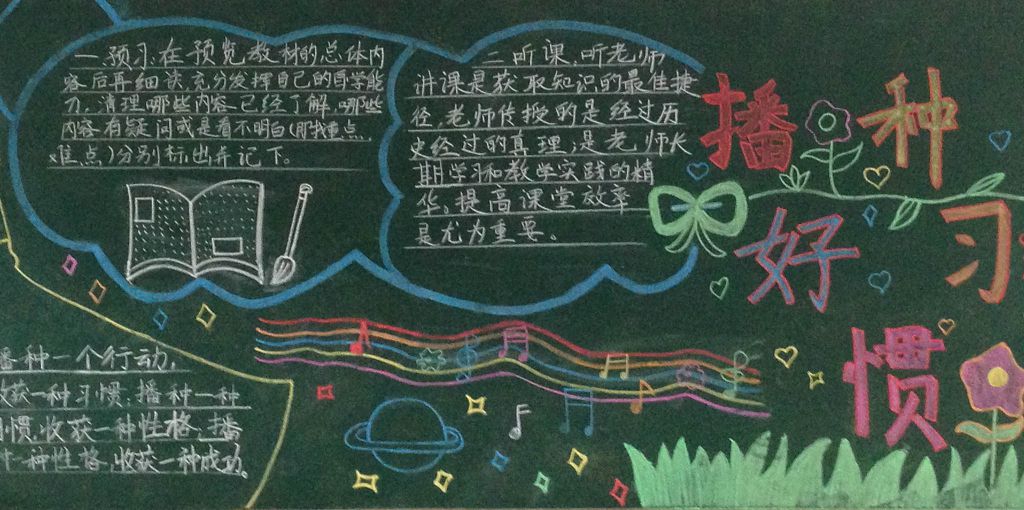 一、预习、在预览教材的总体内
容后再细读,充分发挥自己的自学能
力,清理哪些内容已经了解,哪些
内容有疑问或是看不明白(即找重点、
难点)分别标出并记下。
二、听课、听老师
讲课是获取知识的最佳捷
径,老师传授的是经过历
史经过的真理;是老师长
期学习和教学实践的精
华。提高课堂效率
是尤为重要。
播种
好习
惯
播种一个行动,
收获一种习惯、播种一种
习惯,收获一种性格;播
种一种性格,收获一种成功。